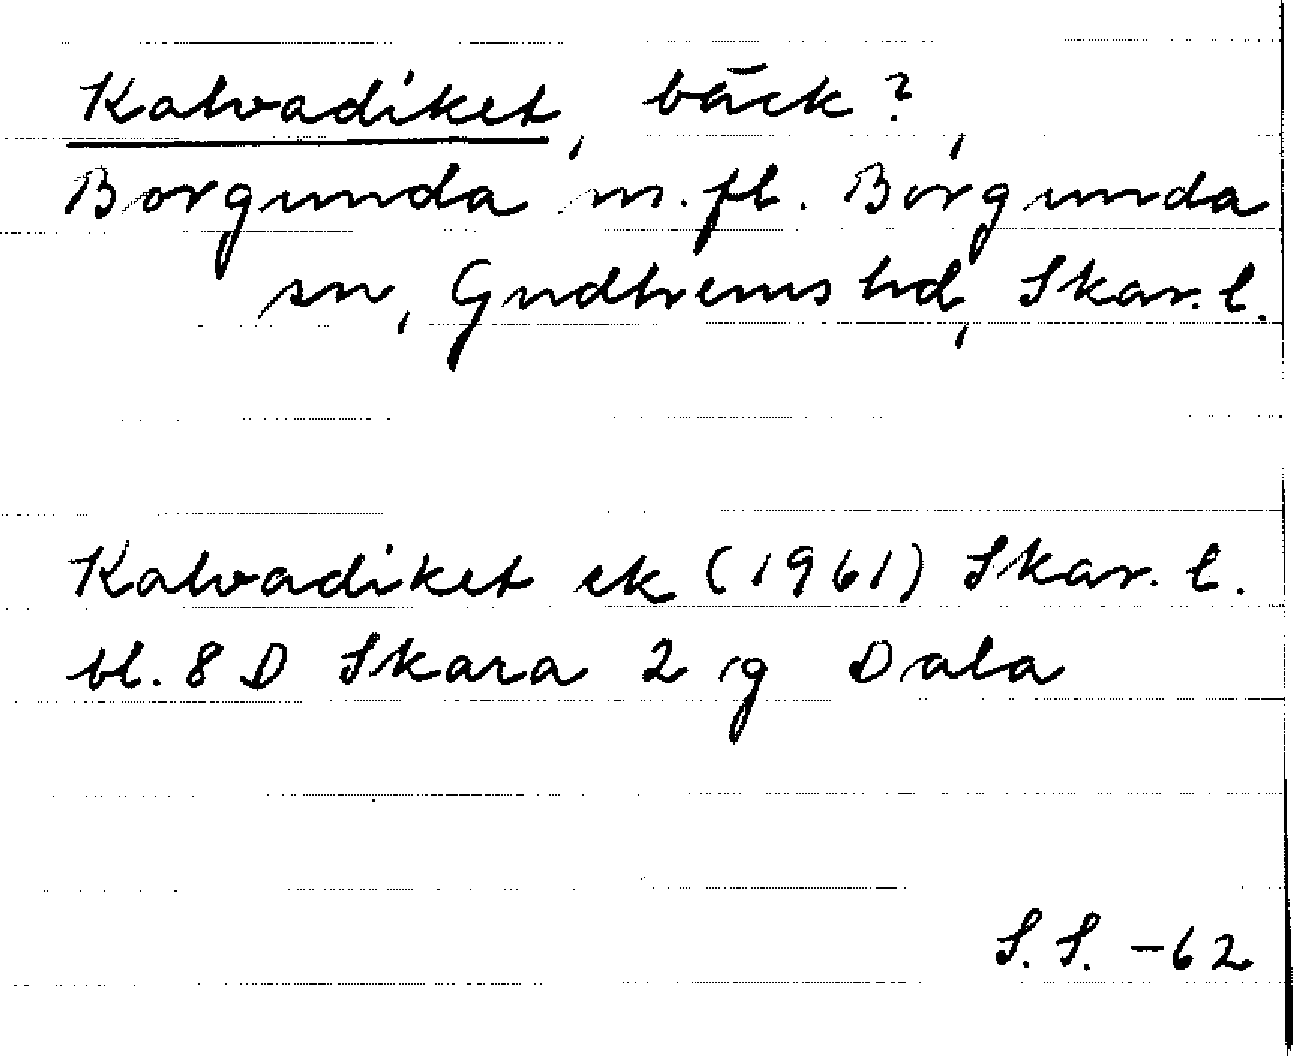 Kalvadiket, bäck?,
Borgunda m.fl. Borgunda
sn, Gudhems hd, Skar. l.
Kalvadiket ek (1961) Skar. l.
bl. 8 D Skara 2 g Dala
S.S. -62